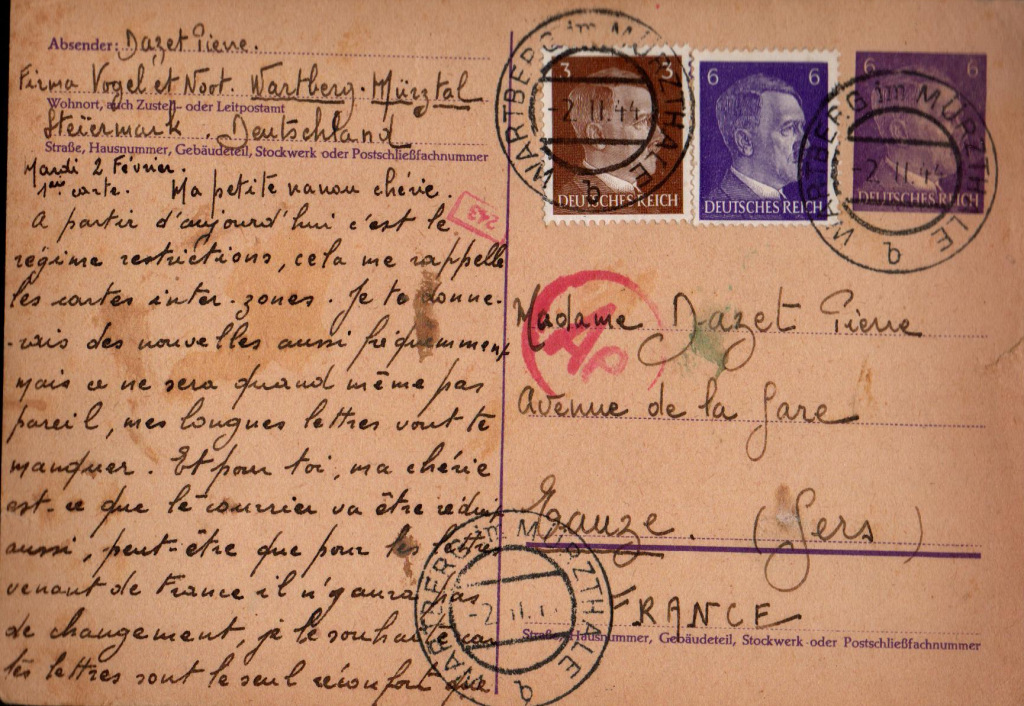 Absender: Dazet Pierre.
Firma Vogel et Noot. Wartberg. Mürztal
Wohnort, auch Zustell- oder Leitpostamt
Steiermark. Deutschland
Straße, Hausnummer, Gebäudeteil, Stockwerk oder Postschließfachnummer
Mardi 2 Février.
1ère carte. Ma petite nanou chérie.
A partir d'aujourd'hui c'est le
régime restrictions, cela me rappelle
les cartes inter-zones. Je te donne-
-rais des nouvelles aussi fréquemment
mais ce ne sera quand même pas
pareil, mes longues lettres vont te
manquer. Et pour toi, ma chérie
est-ce que le courrier va être réduit
aussi, peut-être que pour les lettres
venant de France il n'y aura pas
de changement, je le souhaite car
tes lettres sont le seul réconfort que
243
WARTBERG im MÜRZTHALE
-2.II.44
b
3 3
DEUTSCHES REICH
6 6
DEUTSCHES REICH
6
DEUTSCHES REICH
WARTBERG im MÜRZTHALE
-2.II.44
b
Madame Dazet Pierre
Avenue de la Gare
Eauze. (Gers)
FRANCE
Straße, Hausnummer, Gebäudeteil, Stockwerk oder Postschließfachnummer
WARTBERG im MÜRZTHALE
-2.II.
b